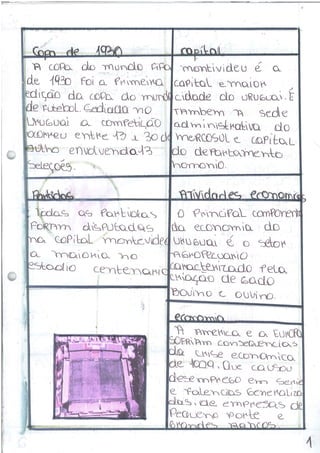 Copa de 1930
A copa do mundo FIFA
de 1930 foi a primeira
edição da copa do mundo
de futebol. Sediada no
Uruguai a competição
ocorreu entre 13 a 30 de
julho envolvenda 13
seleções.
Partidas
Todas as partidas
foram disputadas
na capital montevideu
a maioria no
estadio centenario
capital
montivideu é a
capital e maior
cidade do uruguai. É
também a sede
administrativa do
mercosul e capital
do departamento
homonio.
Atividades economicas
O principal component
da economia do
uruguai é o setor
agropecuario
caracterizado pela
criação de gado
Bovino e ouvino.
economia
A America e a Europa
sofriam consequencias
da crise economica
de 1929. Que causou
desemprego em serie
e falencias generaliza
das, de empresas de
pequeno porte e
grandes bancos
1